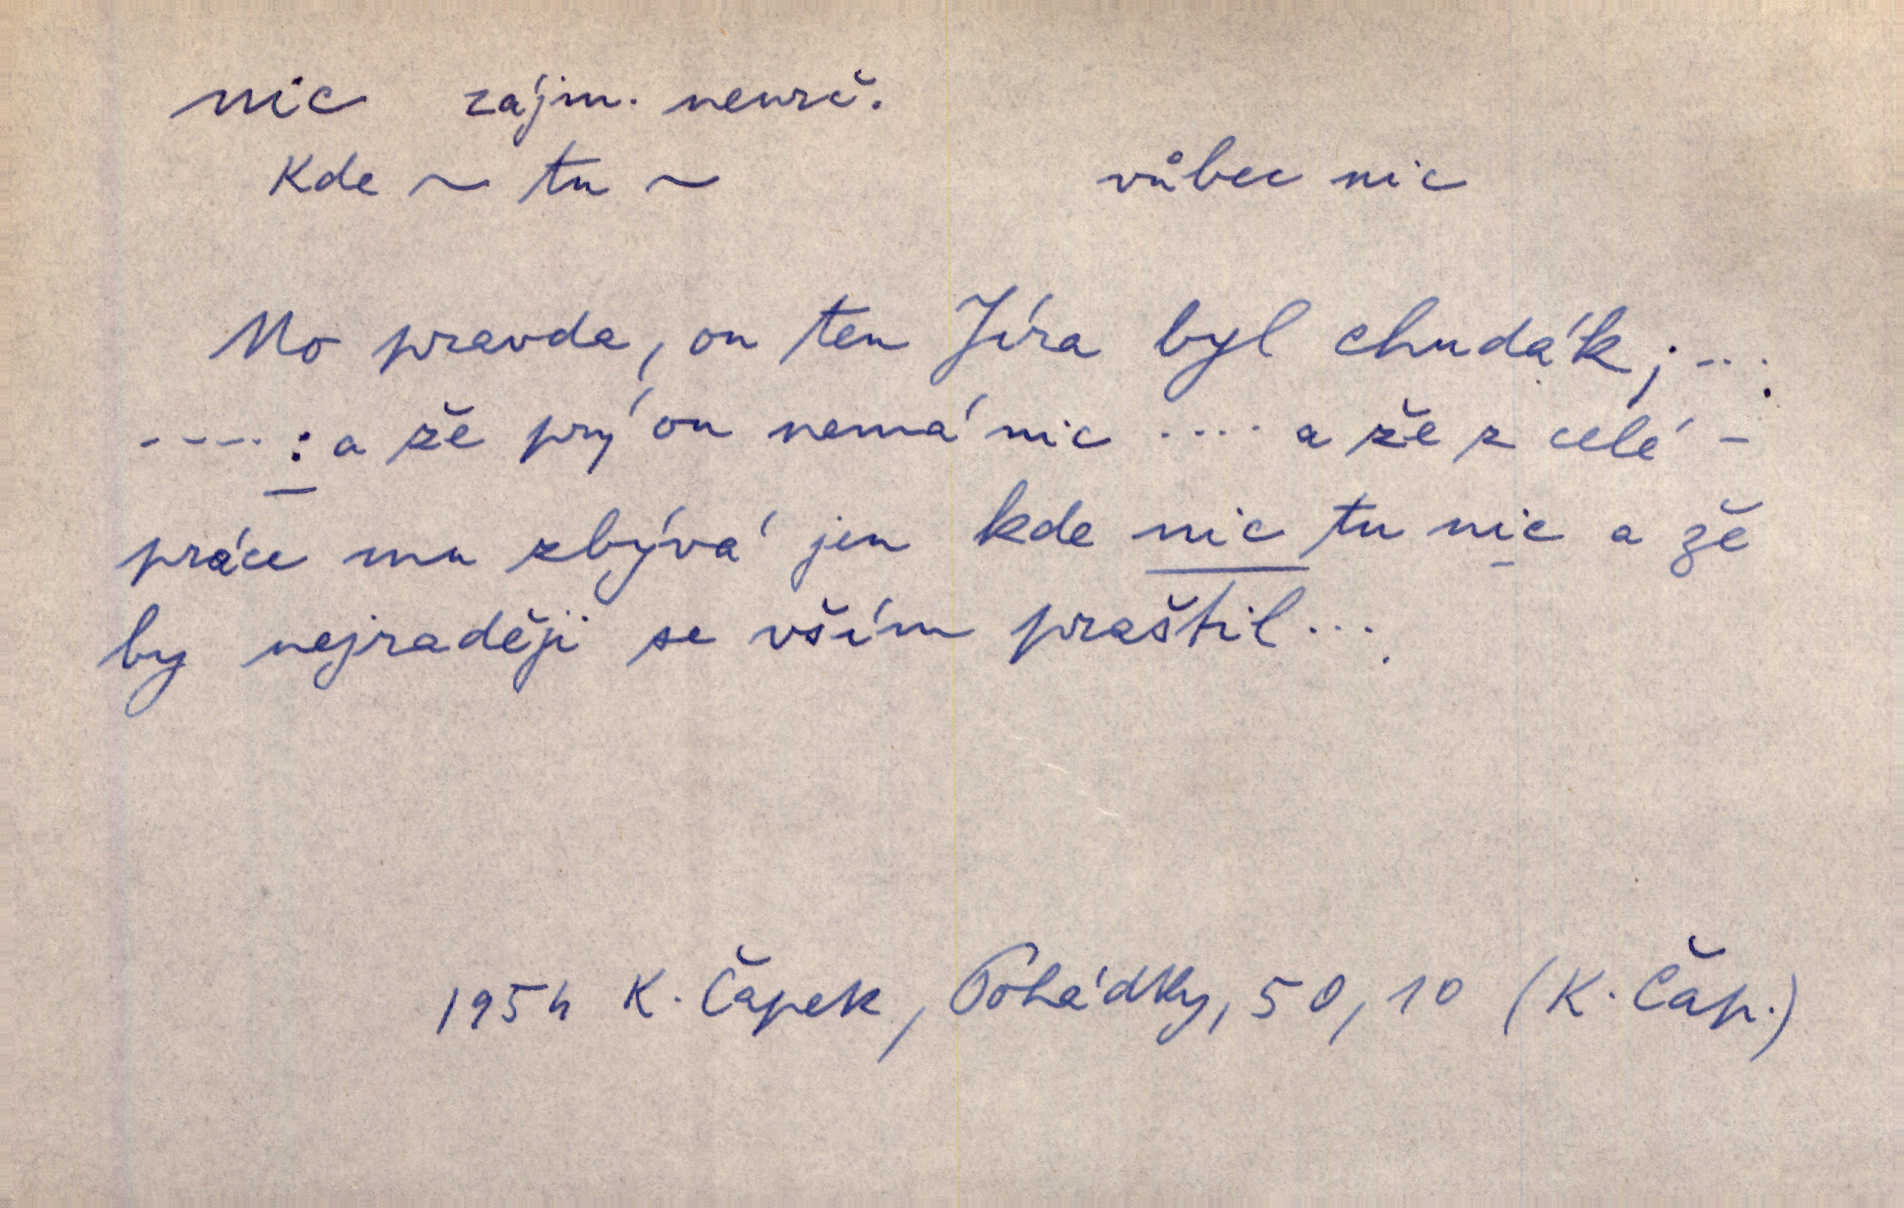 nic zájm. neurč.
Kde ~ tu ~ vůbec nic
No pravda, on ten Jíra byl chudák; ...
---- : a že prý on nemá nic .... a že z celé -
práce mu zbývá jen kde nic tu nic a že
by nejraději se vším praštil ...
1954 K. Čapek, Pohádky, 50, 10 (K. Čap.)